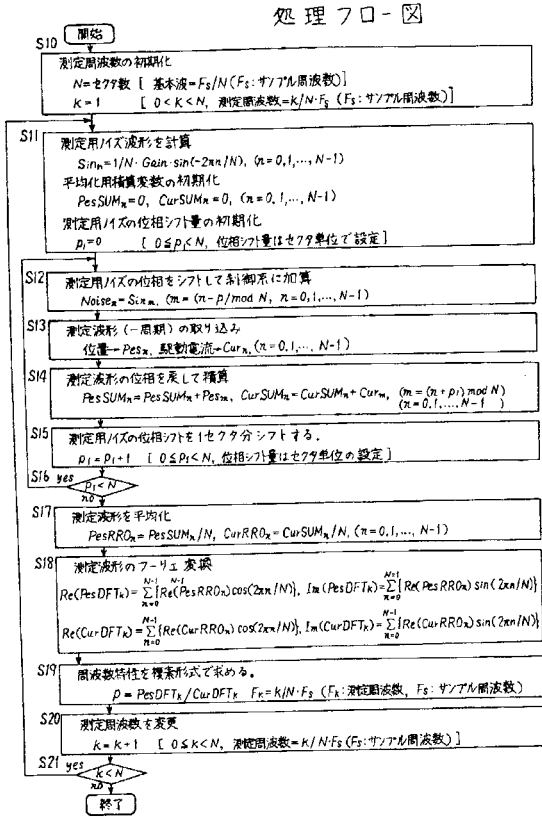 処理フロー図
開始
S10
測定周波数の初期化
N=セクタ数 [ 基本波=Fs/N (Fs:サンプル周波数)]
K=1 [ 0<K<N, 測定周波数=k/N·Fs (Fs:サンプル周波数) ]
S11
測定用ノイズ波形を計算
Sinn=1/N·Gain·sin(-2πn/N), (n=0,1,..., N-1)
平均化用積算変数の初期化
PesSUMn=0, CurSUMn=0, (n=0,1,..., N-1)
測定用ノイズの位相シフト量の初期化
pi=0 [ 0≦pi<N, 位相シフト量はセクタ単位で設定]
S12
測定用ノイズの位相をシフトして制御系に加算
Noisen=Sinm, (m=(n-p/mod N, n=0,1,..., N-1)
S13
測定波形(一周期)の取り込み
位置→Pesn, 駆動電流→Curn, (n=0,1,..., N-1)
S14
測定波形の位相を戻して積算
PesSUMn=PesSUMn+Pesm, CurSUMn=CurSUMn+Curm, (m=(n+pi) mod N)
(n=0,1,...,N-1 )
S15
測定用ノイズの位相シフトを1セクタ分シフトする.
pi=pi+1 [ 0≦pi<N, 位相シフト量はセクタ単位の設定]
S16 yes
pi<N
no
S17
測定波形を平均化
PesRROn=PesSUMn/N, CurRROn=CurSUMn/N, (n=0,1,..., N-1)
S18
測定波形のフーリェ変換
Re(PesDFTk)=N-1Σn=0{N-1Re(PesRROn)cos(2πn/N)}, Im(PesDFTk)=N=1Σn=0{Re(PesRROn)sin(2πn/N)}
Re(CurDFTk)=N-1Σn=0{Re(CurRROn)cos(2πn/N)}, Im(CurDFTk)=N-1Σn=0{Re(CurRROn)sin(2πn/N)}
S19
周波数特性を複素形式で求める。
P=PesDFTk/CurDFTk Fk=k/N·Fs (Fk:測定周波数, Fs:サンプル周波数)
S20
測定周波数を変更
k=k+1 [ 0≦k<N, 測定周波数=k/N·Fs (Fs:サンプル周波数) ]
S21 yes
k<N
no
終了